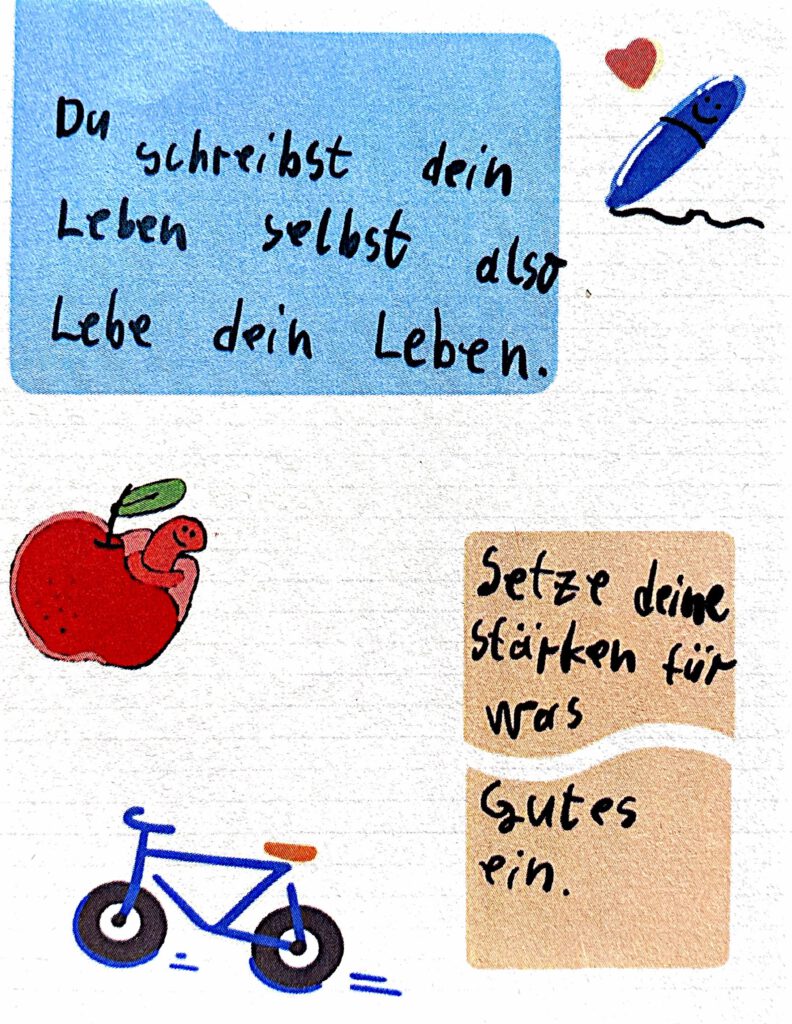 Du schreibst dein
Leben selbst also
Lebe dein Leben.
Setze deine
stärken für
was
Gutes
ein.